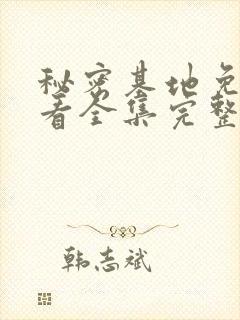 秘密基地免
看全集完整
韩志斌